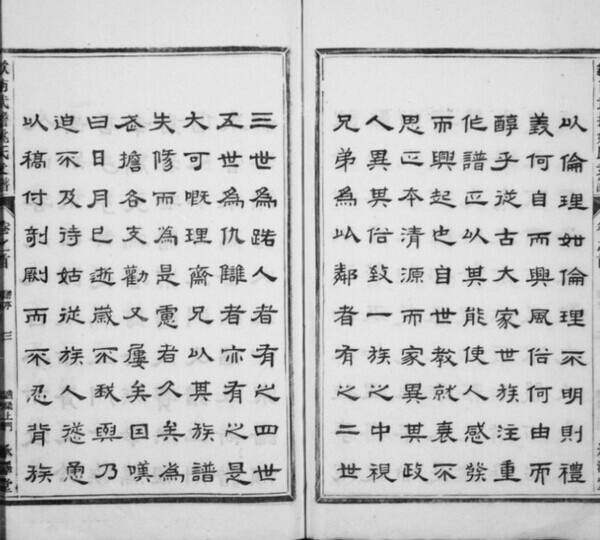 以倫理如倫理不明則禮
義何自而興風俗何由而
醇乎從古大家世族注重
作譜正以其能使人感發
而興起也自世教就衰不
思正本清源而家異其政
人異其俗致一族之中視
兄弟為以鄰者有之二世
三世為路人者有之四世
五世為仇讎者亦有之是
大可嘅理齋兄以其族譜
失修而為是慮者久矣為
擔各支勸又屢矣因嘆
曰日月已逝歲不我與乃
迫不及待姑從族人慫恿
以稿付剞劂而不忍背族
卷之首
三